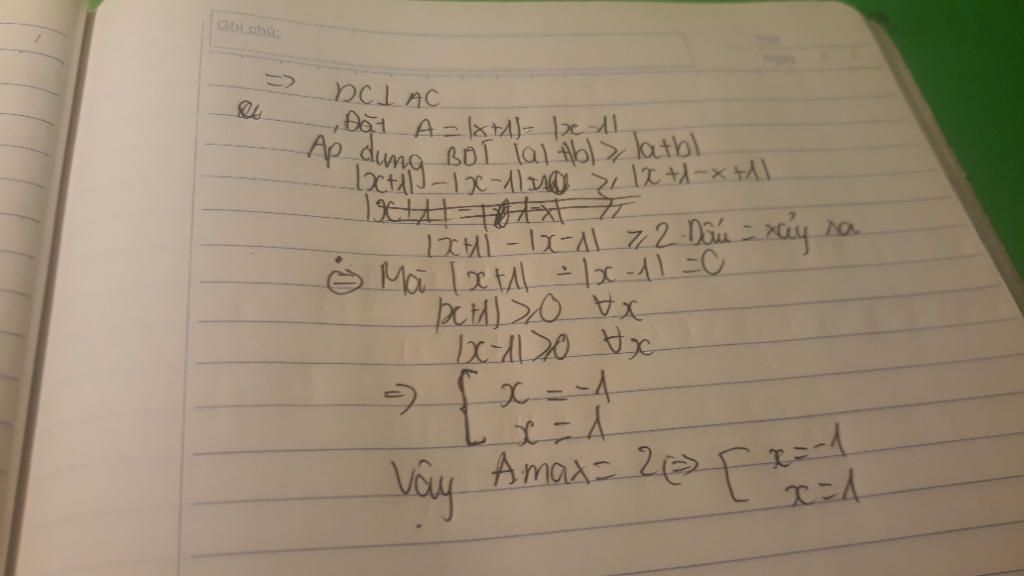 Ghi chú:
Thứ
Ngày
=> DC⊥AC
Đặt A = |x+1| - |x-1|
Áp dụng BĐT |a|+|b| ≥ |a+b|
|x+1| - |x-1| ≥ |x+1-x+1|
|x+1| - |x-1| ≥ 2. Dấu = xảy ra
<=> Mà |x+1| - |x-1| = 0
|x+1| ≥ 0 ∀x
|x-1| ≥ 0 ∀x
=> [ x = -1
x = 1
Vậy Amax = 2 <=> [ x = -1
x = 1